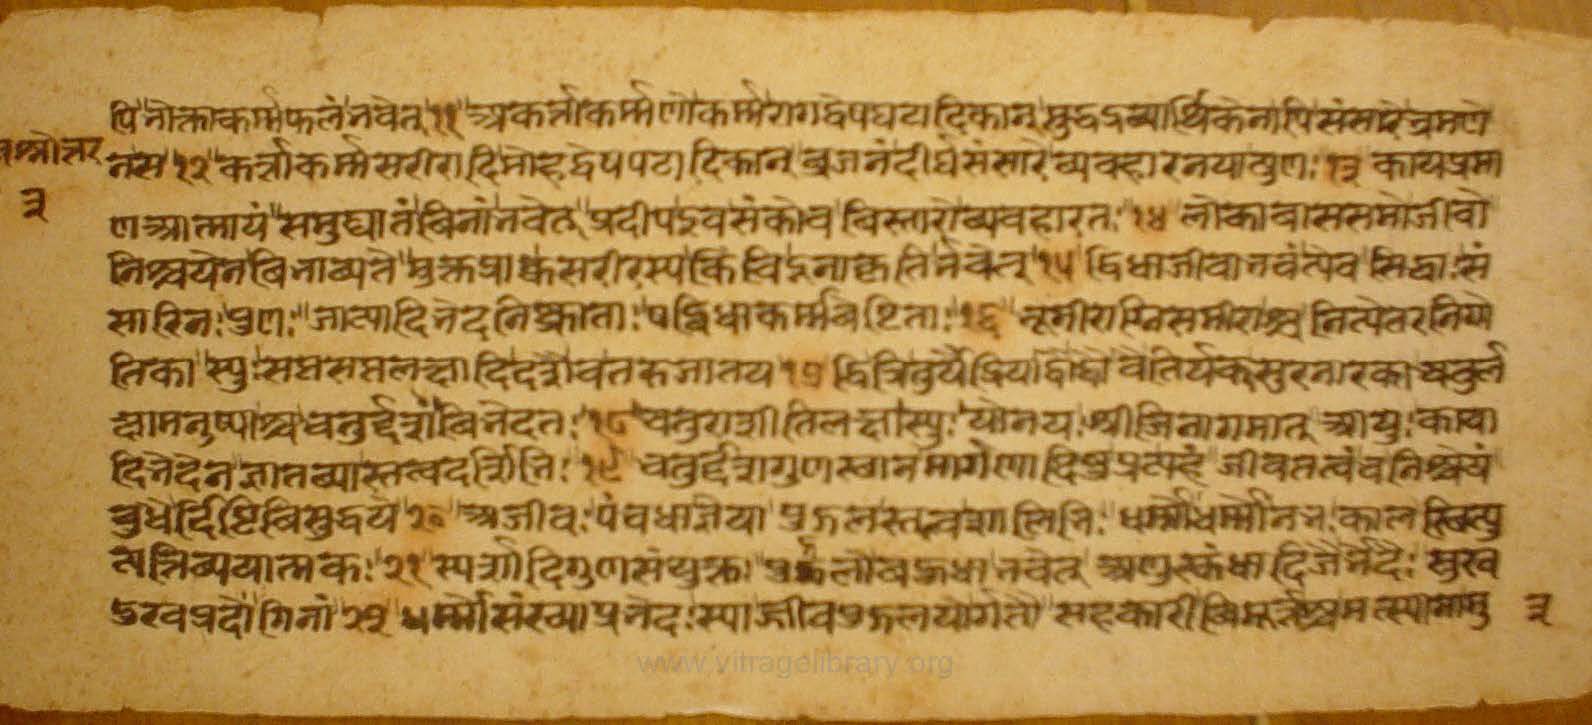 पि नोक्ता कर्म्मफलं नवेत् ११ अकर्त्ता कर्म्मणो कर्म्म रागद्वेषघटादिकान् सुद्धद्रव्यार्थिकेनापि संसारे भ्रमणे
प्रश्नोत्तर
नस १२ कर्त्ता कर्म्म सरीरादि मोहद्वेषपटादिकान् व्रजनं दीर्घसंसारे व्यवहारनयावुणः १३ कायप्रमा
३
ण आत्मायं समुघातं बिनां नवेत् प्रदीप इव संकोच बिस्तारो व्यवहारतः १४ लोकावाससमो जीवो
निश्चयेन बिभाव्यते मुक्त प्राक्क सरीरस्य किंचिदूनाकृतिर्नवेत् १५ द्विधा जीवा नवंत्येव सिद्धाः सं
सारिनः पुणः जात्यादिनेद निःक्राताः षड्विधा कर्म्मवेष्टिताः १६ नूनीराग्निसमीराश्च नित्येतरनिगो
तिका स्युः सप्तसप्तलक्षादि दशैवतरुजातय १७ द्वित्रितुर्येंद्रिया द्वौ द्वौ वै तिर्यक्सुरनारका चतुर्ल
क्षा मनुष्याश्च चतुर्द्दशांबिनेदतः १८ चतुराशीतिलक्षा स्युः योनयः श्रीजिनागमात् आयुः काया
दिनेदेन ज्ञातव्यास्तत्वदर्शिनिः १९ चतुर्द्दशगुणस्थान मार्गणादिषु प्रत्यहं जीवतत्वं च निश्चेयं
बुधैर्दिष्टिबिसुद्धये २० अजीवः पंचधा ज्ञेया पुद्गलस्तत्वशालिनिः धर्म्मोधर्म्मो ननः काल स्थित्यु
त्पत्तिव्ययात्मकः २१ स्पर्शादिगुणसंयुक्तः पुद्गलो बहुधा नवेत् अणुस्कंधादिजैर्नेदैः सुख
दुःखप्रदोंगिनां २२ धर्म्मोसंख्याप्रनेदः स्याज्जीवपुद्गलयोर्गतौ सहकारी
३
www.vitragelibrary.org